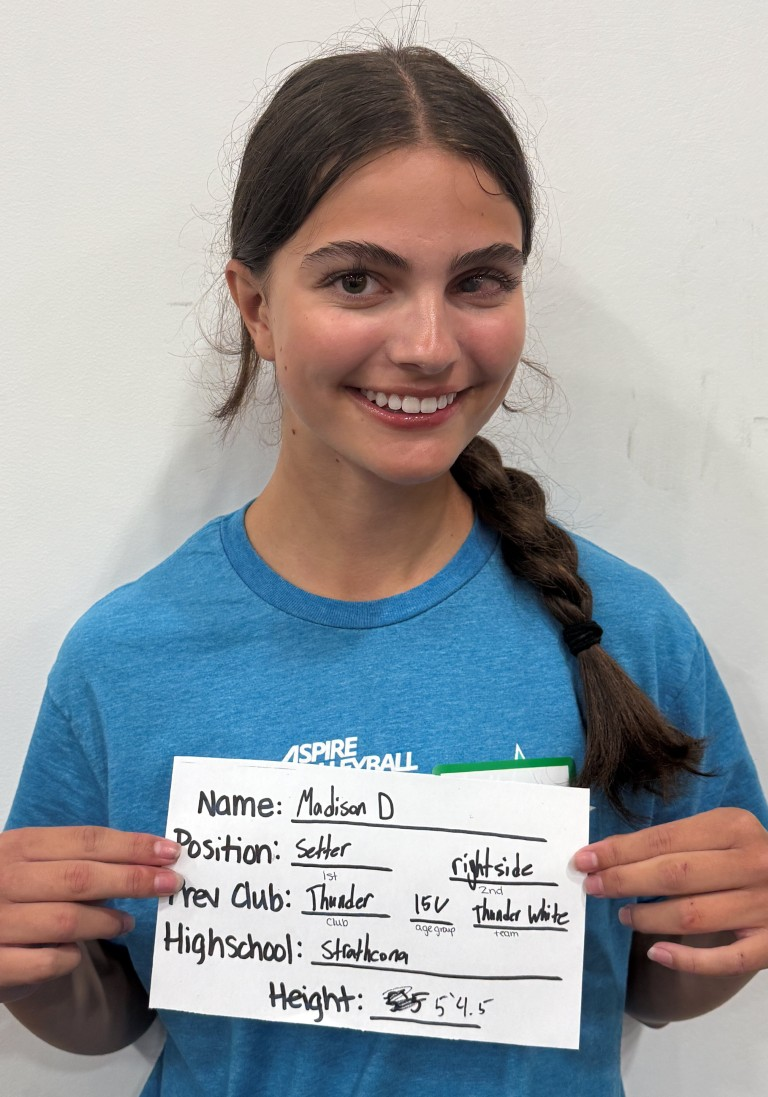 ASPIRE
Name: Madison D
Position: Setter rightside
1st 2nd
Prev Club: Thunder 15U Thunder White
Club age group team
Highschool: Strathcona
Height: 5'4.5